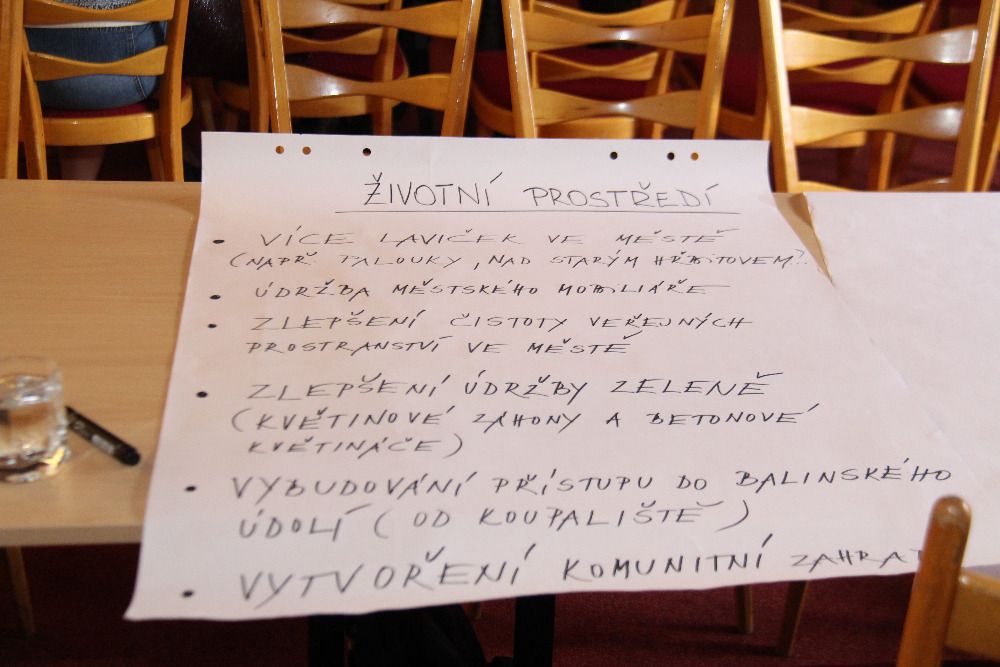 ŽIVOTNÍ PROSTŘEDÍ
• VÍCE LAVIČEK VE MĚSTĚ
(NAPŘ. PALOUKY, NAD STARÝM HŘBITOVEM?
• ÚDRŽBA MĚSTSKÉHO MOBILIÁŘE
• ZLEPŠENÍ ČISTOTY VEŘEJNÝCH
PROSTRANSTVÍ VE MĚSTĚ
• ZLEPŠENÍ ÚDRŽBY ZELENĚ
(KVĚTINOVÉ ZÁHONY A BETONOVÉ
KVĚTINÁČE)
• VYBUDOVÁNÍ PŘÍSTUPU DO BALINSKÉHO
ÚDOLÍ (OD KOUPALIŠTĚ)
• VYTVOŘENÍ KOMUNITNÍ